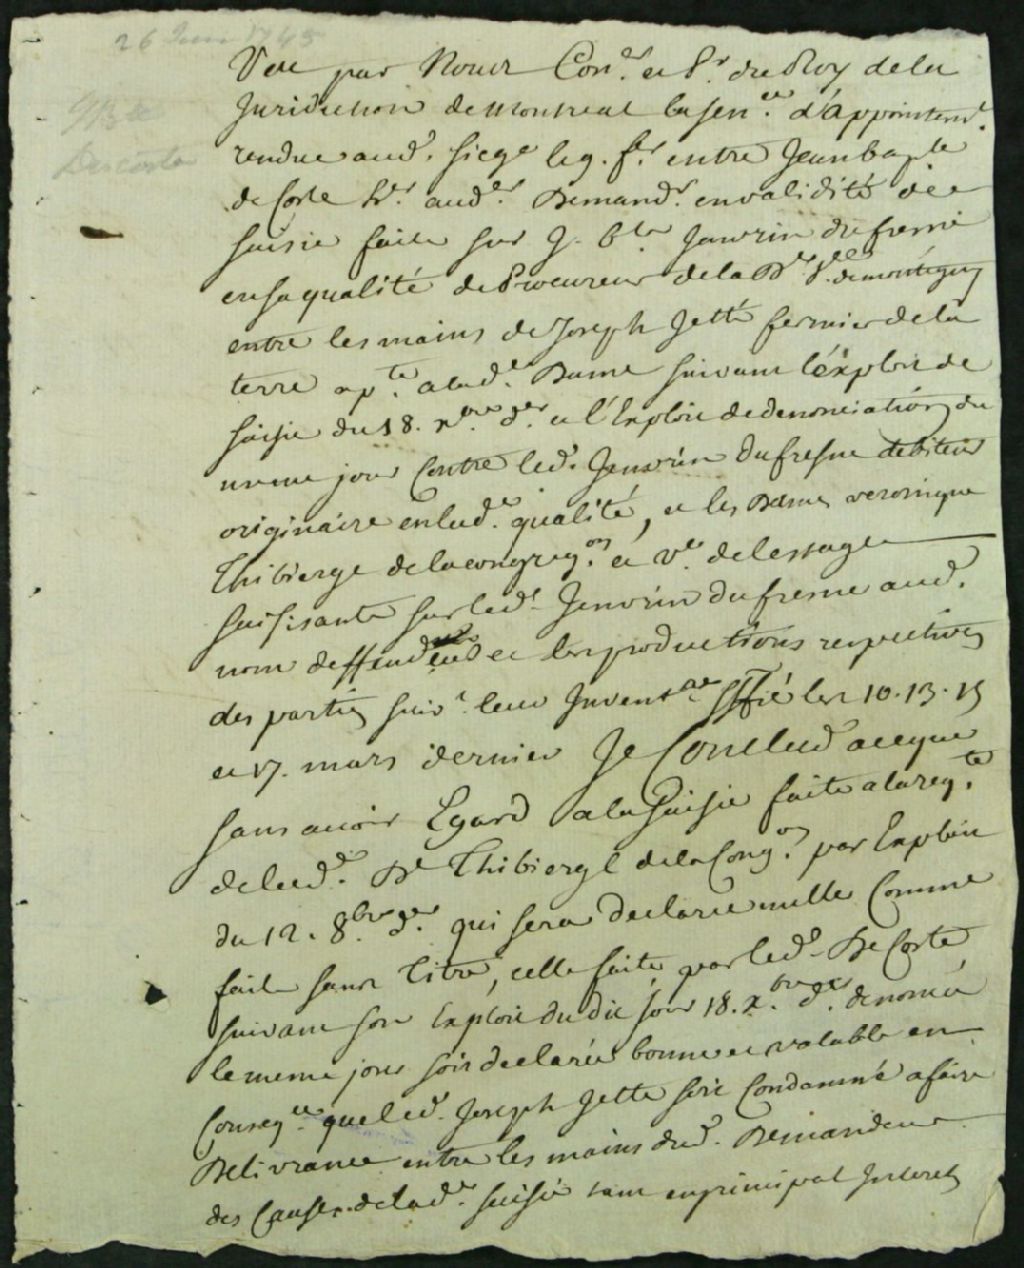 26 Juin 1745
Descoste
Veu par Nous Con.er et P.r du Roy de la
Juridiction de Montreal la sen.ce d'appointem.t
rendue aud. siege le 9. f.er entre Jean bap.te
de Coste h.er aud.er Demand.r en validité de
saisie faite sur J. b.te Janvrin dufresne
en sa qualité de Procureur de la D.e V.e de montigny
entre les mains de Joseph Jetté fermier de la
terre ap.te a lad.e Dame suivant l'éxploit de
saisie du 18. x.bre d.er et l'Exploit de denonciation du
meme jour Contre led. Janvrin Dufresne debiteur
originaire en lad.e qualité, et les Dames veronique
Thibierge de la congreg.on et v.e de lessage
saisisante sur led. Janvrin dufresne aud.
nom deffendeurs et les productions respectives
des parties suiv.t leur Invent.re signiffié les 10. 13. 15
et 17. mars dernier Je Conclud a ce que
sans avoir Egard a la Saisie faite a la req.te
de lad.e D.e Thibierge de la Cong.on par Exploit
du 12. 8.bre d.er qui sera declarée nulle Comme
faite sans titre, celle faite par led. De Coste
suivant son Exploit du dit jour 18. x.bre d.er denoncé
le meme jour soit declarée bonne et valable en
Conseq.ce que led. Joseph Jetté soit Condamné a faire
Delivrance entre les mains dud. Demandeur
des Causes de lad.e saisie tant en principal Interets